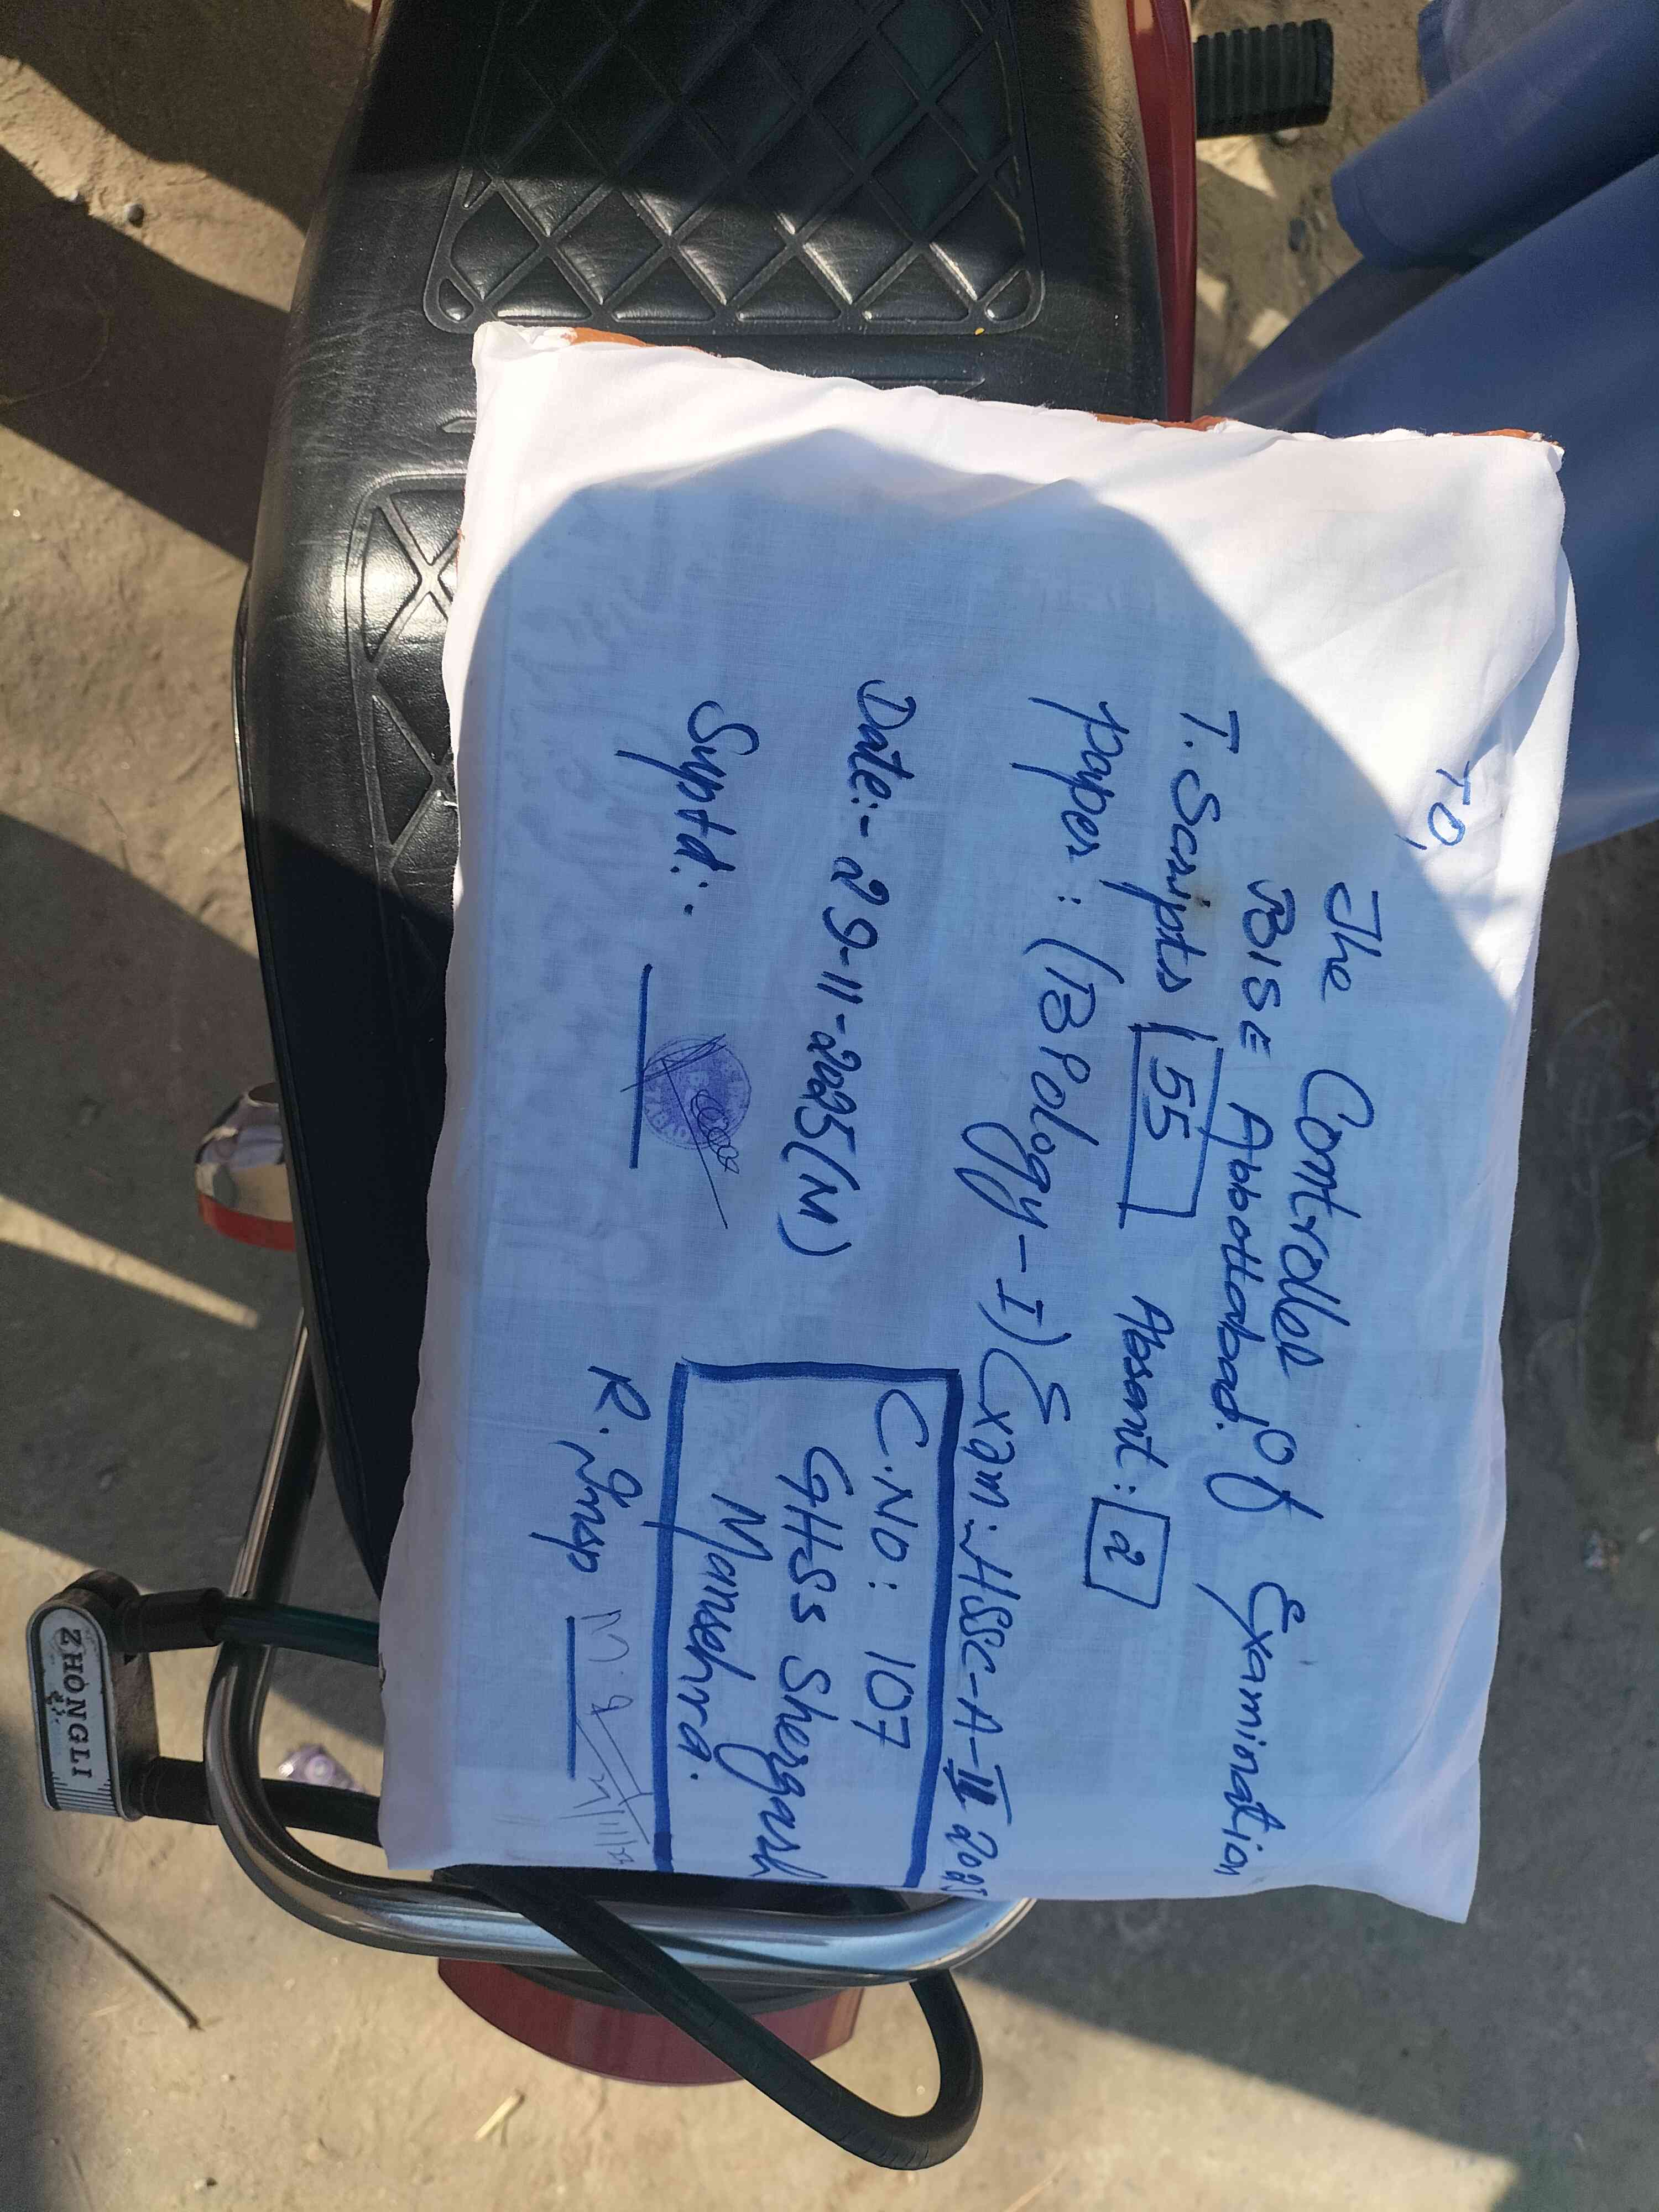 To,
The Controller of Examination
BISE Abbottabad.
T. Scripts 55 Absent: 2
Paper: (Biology-I) Exam:-HSSC-A-II 2025
Date:- 29-11-2025(M)
C.No: 107
GHSS Shergarh
Mansehra.
Suptd:-
R. Insp
ZHONGLI